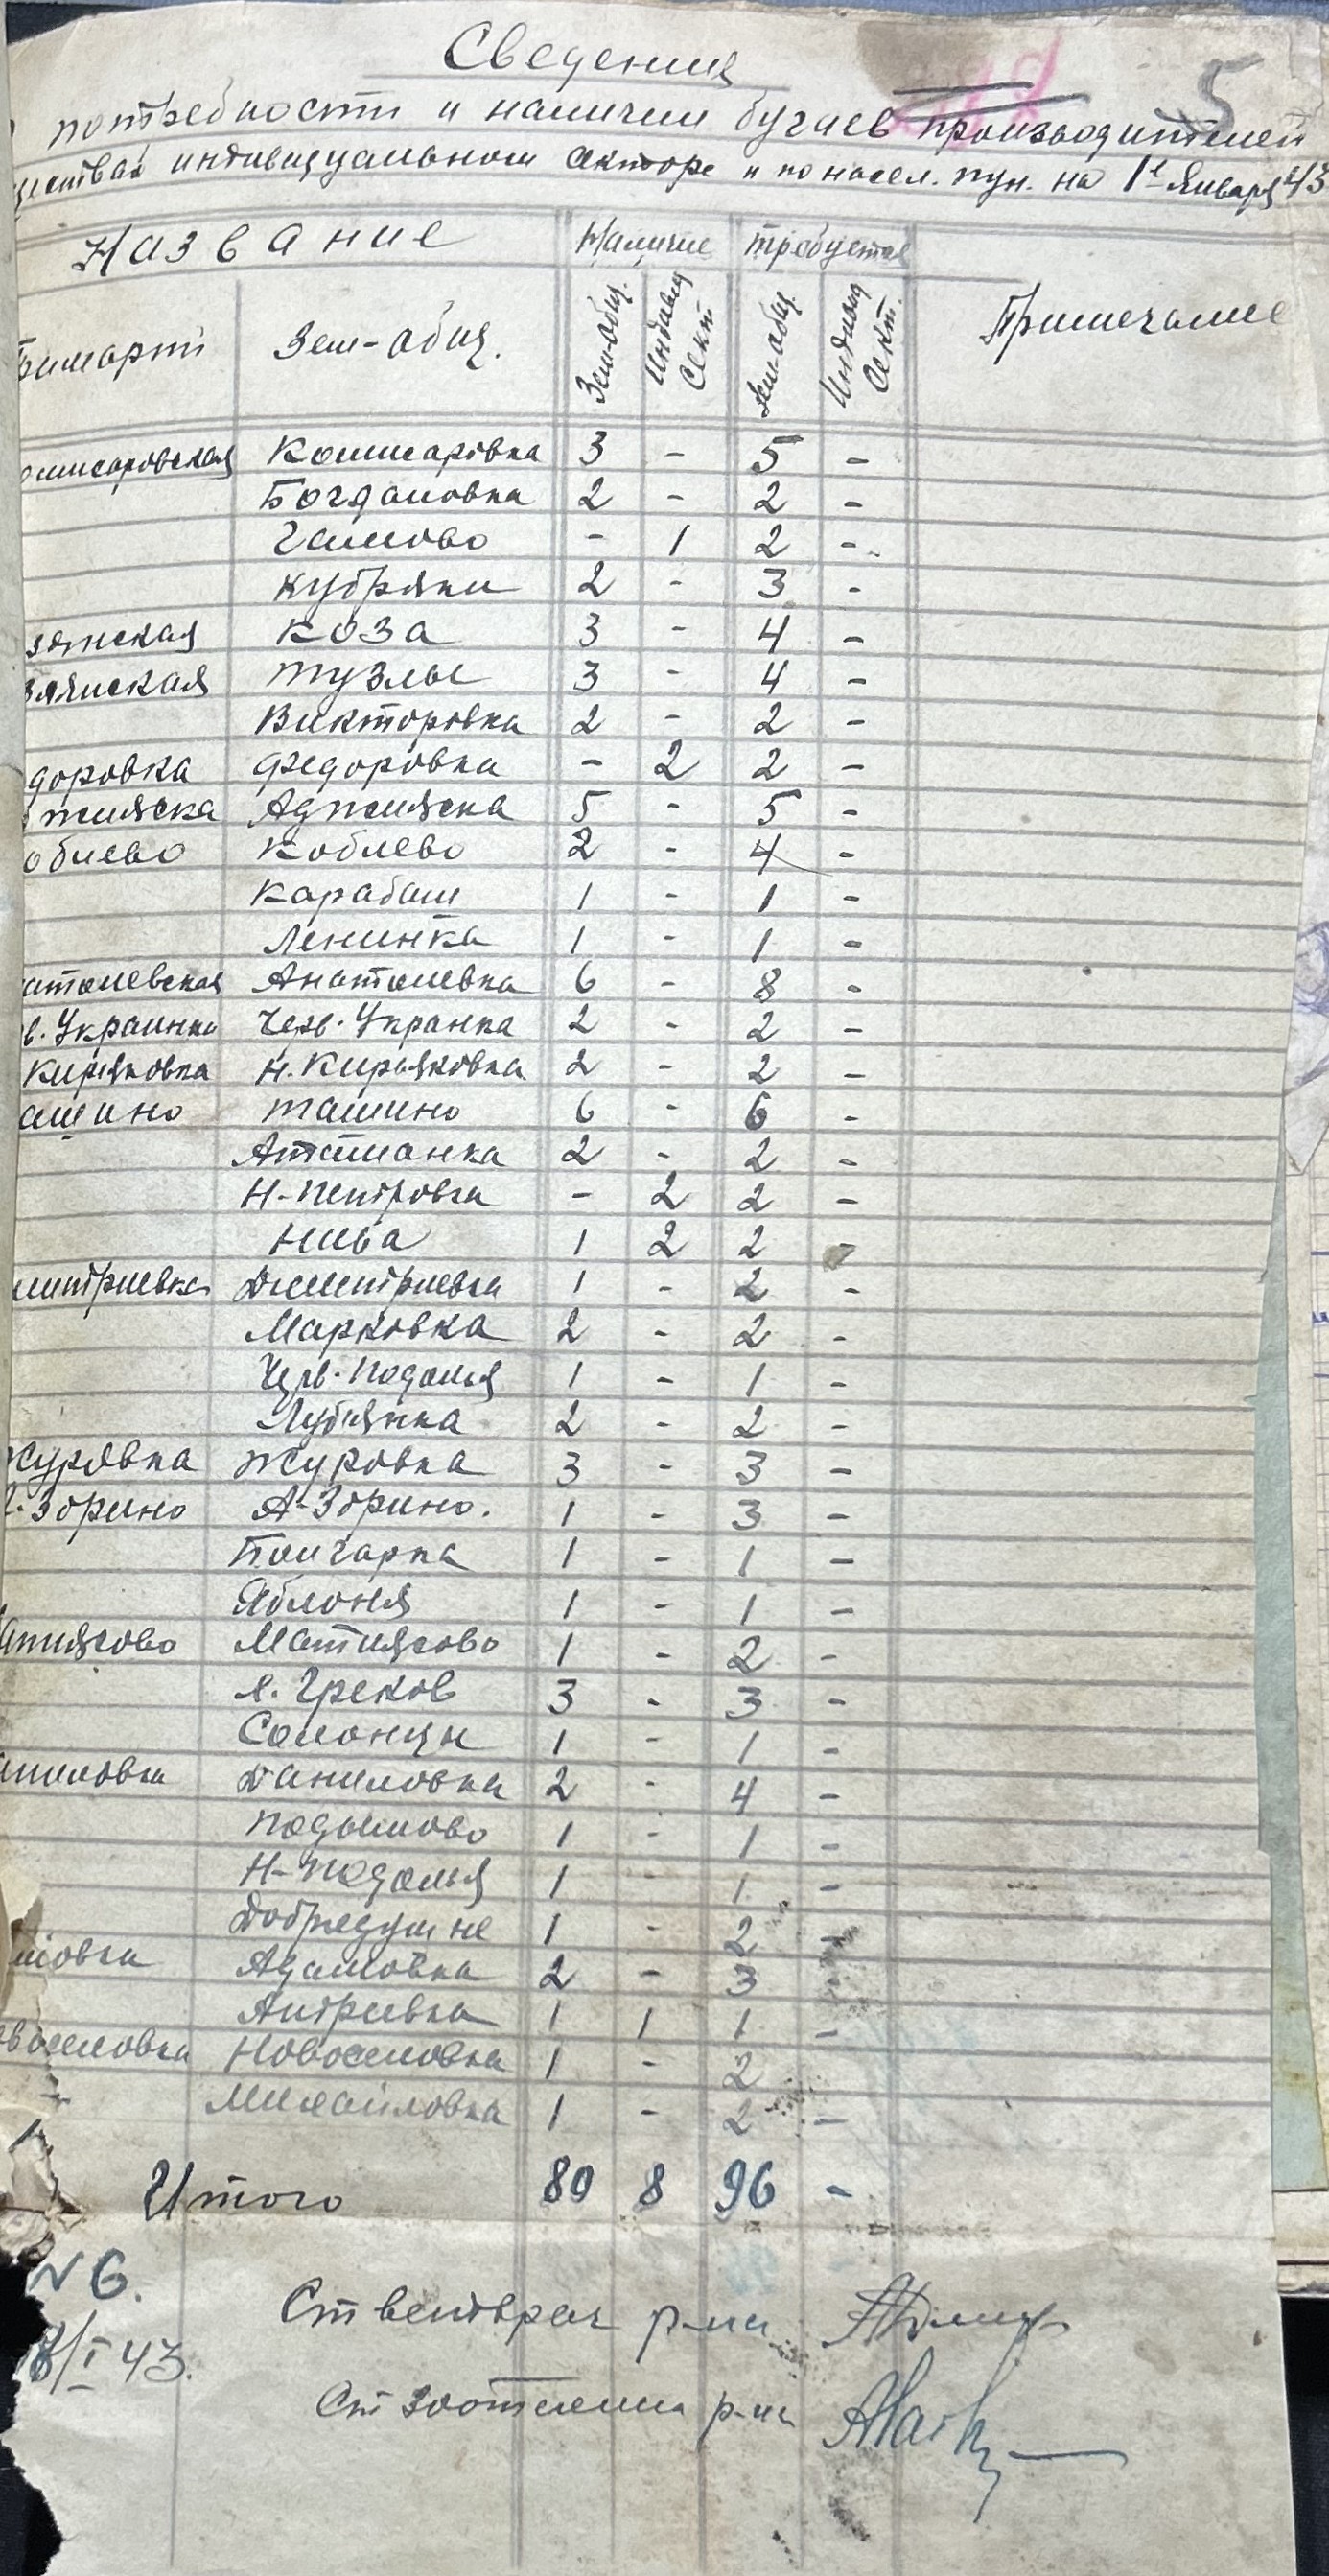 Сведения
потребности и наличии бугаев производителей
индивидуальном секторе и по насел. пун. на 1е Января 43
5
Название Наличие требуется
Зем-общ. Зем-общ. Индивид Сект Зем-общ. Индивид Сект. Примечание
омисаровская Комисаровка 3 - 5 -
Богдановка 2 - 2 -
- 1 2 -
Кубряки 2 - 3 -
Коза 3 - 4 -
Тузлы 3 - 4 -
Викторовка 2 - 2 -
доровка Федоровка - 2 2 -
жияска Аджияска 5 - 5 -
облево Коблево 2 - 4 -
Карабаш 1 - 1 -
Ленинка 1 - 1 -
атолевская Анатолевка 6 - 8 -
в. Украинка Черв. Укранка 2 - 2 -
Кирьяковка Н. Кирьяковка 2 - 2 -
ашино Ташино 6 - 6 -
Атаманка 2 - 2 -
Н-Петровка - 2 2 -
Нива 1 2 2 -
митриевка Дмитриевка 1 - 2 -
Марковка 2 - 2 -
Черв. Подолья 1 - 1 -
Лубянка 2 - 2 -
журовка Журовка 3 - 3 -
Зорино А-Зорино. 1 - 3 -
1 - 1 -
Яблоня 1 - 1 -
атиясово Матиясово 1 - 2 -
Греков 3 - 3 -
Солонцы 1 - 1 -
аниловка Даниловка 2 - 4 -
Подымово 1 - 1 -
Н-Подолья 1 1 -
1 - 2 -
мовка Адамовка 2 - 3
1 1 1 -
овоселовка Новоселовка 1 - 2
Михайловка 1 - 2 -
Итого 80 8 96 -
N 6.
/I 43.
Ст ветврач р-на
Ст зоотехник р-на